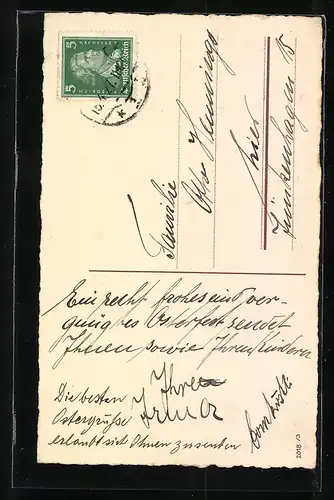 5 Deutsches Reich 5
Familie
Otto Hennings
hier
Ein recht frohes und ver-
gnügtes Osterfest sendet
Ihnen sowie Ihren Kindern
Ihre
Irma
Die besten
Ostergrüße
erlaubt sich Ihnen zu senden
2018/3